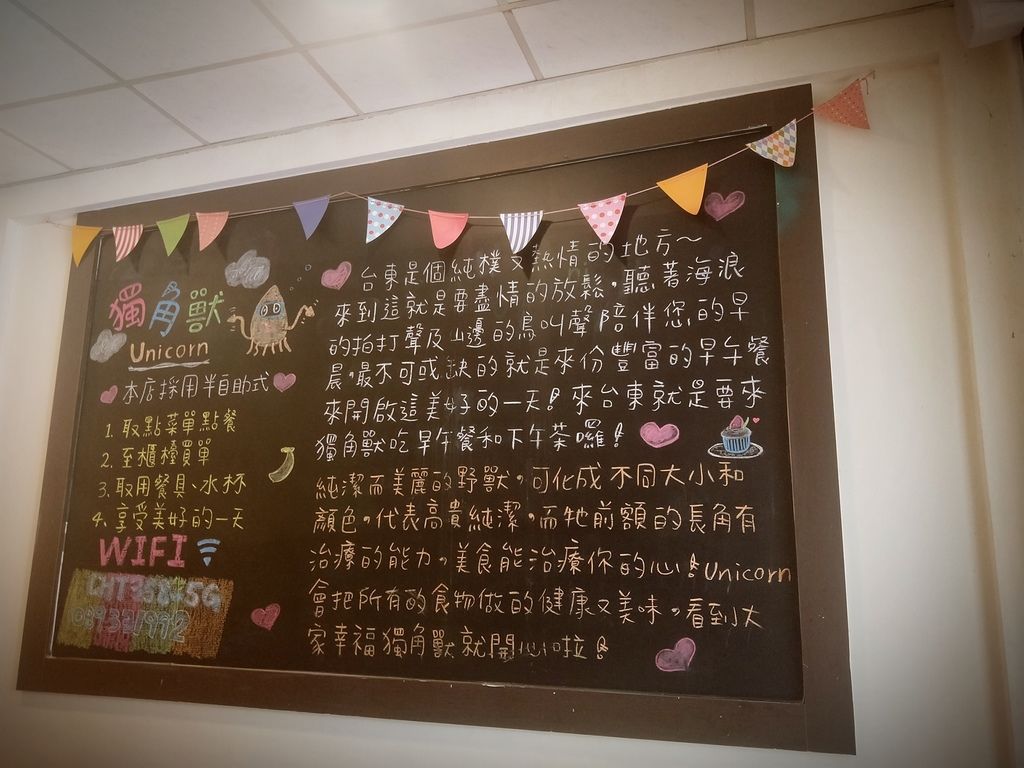 獨角獸
Unicorn
本店採用半自助式
1. 取點菜單點餐
2. 至櫃檯買單
3. 取用餐具、水杯
4. 享受美好的一天
WIFI
台東是個純樸又熱情的地方~
來到這就是要盡情的放鬆,聽著海浪
的拍打聲及山邊的鳥叫聲陪伴您的早
晨,最不可或缺的就是來份豐富的早午餐
來開啟這美好的一天!來台東就是要來
獨角獸吃早午餐和下午茶囉!
純潔而美麗的野獸,可化成不同大小和
顏色,代表高貴純潔,而牠前額的長角有
治療的能力,美食能治療你的心!Unicorn
會把所有的食物做的健康又美味,看到大
家幸福獨角獸就開心啦!